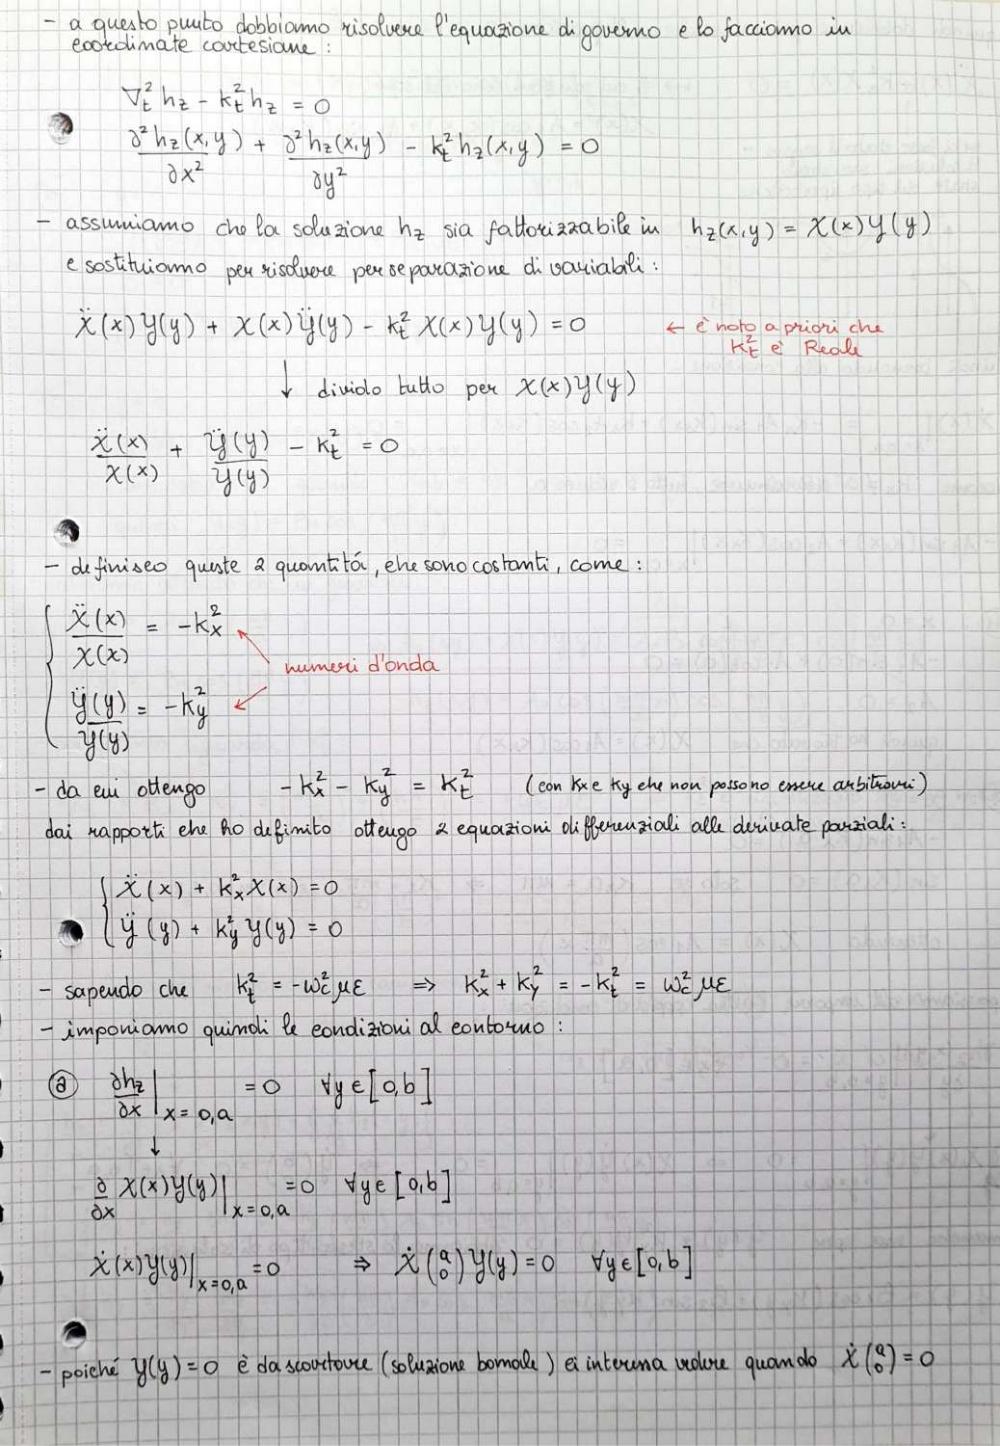 - a questo punto dobbiamo risolvere l'equazione di governo e lo facciamo in
coordinate cartesiane :
∇t² hz - kt² hz = 0
∂²hz(x,y)/∂x² + ∂²hz(x,y)/∂y² - kt² hz(x,y) = 0
- assumiamo che la soluzione hz sia fattorizzabile in hz(x,y) = X(x)Y(y)
e sostituiamo per risolvere per separazione di variabili :
Ẍ(x)Y(y) + X(x)Ÿ(y) - kt² X(x)Y(y) = 0 ← è noto a priori che
kt² è Reale
↓ divido tutto per X(x)Y(y)
Ẍ(x)/X(x) + Ÿ(y)/Y(y) - kt² = 0
- definisco queste 2 quantitá, che sono costanti, come :
Ẍ(x)/X(x) = -kx²
numeri d'onda
Ÿ(y)/Y(y) = -ky²
- da cui ottengo -kx² - ky² = kt² (con kx e ky che non possono essere arbitrari)
dai rapporti che ho definito ottengo 2 equazioni differenziali alle derivate parziali :
Ẍ(x) + kx² X(x) = 0
Ÿ(y) + ky² Y(y) = 0
- sapendo che kt² = -ωc² με ⇒ kx² + ky² = -kt² = ωc² με
- imponiamo quindi le condizioni al contorno :
ⓐ ∂hz/∂x |x=0,a = 0 ∀y∈[0,b]
↓
∂/∂x X(x)Y(y)|x=0,a = 0 ∀y∈[0,b]
Ẋ(x)Y(y)|x=0,a = 0 ⇒ Ẋ(a 0)Y(y) = 0 ∀y∈[0,b]
- poiché Y(y) = 0 è da scartare (soluzione banale) ci interessa vedere quando Ẋ(a 0) = 0